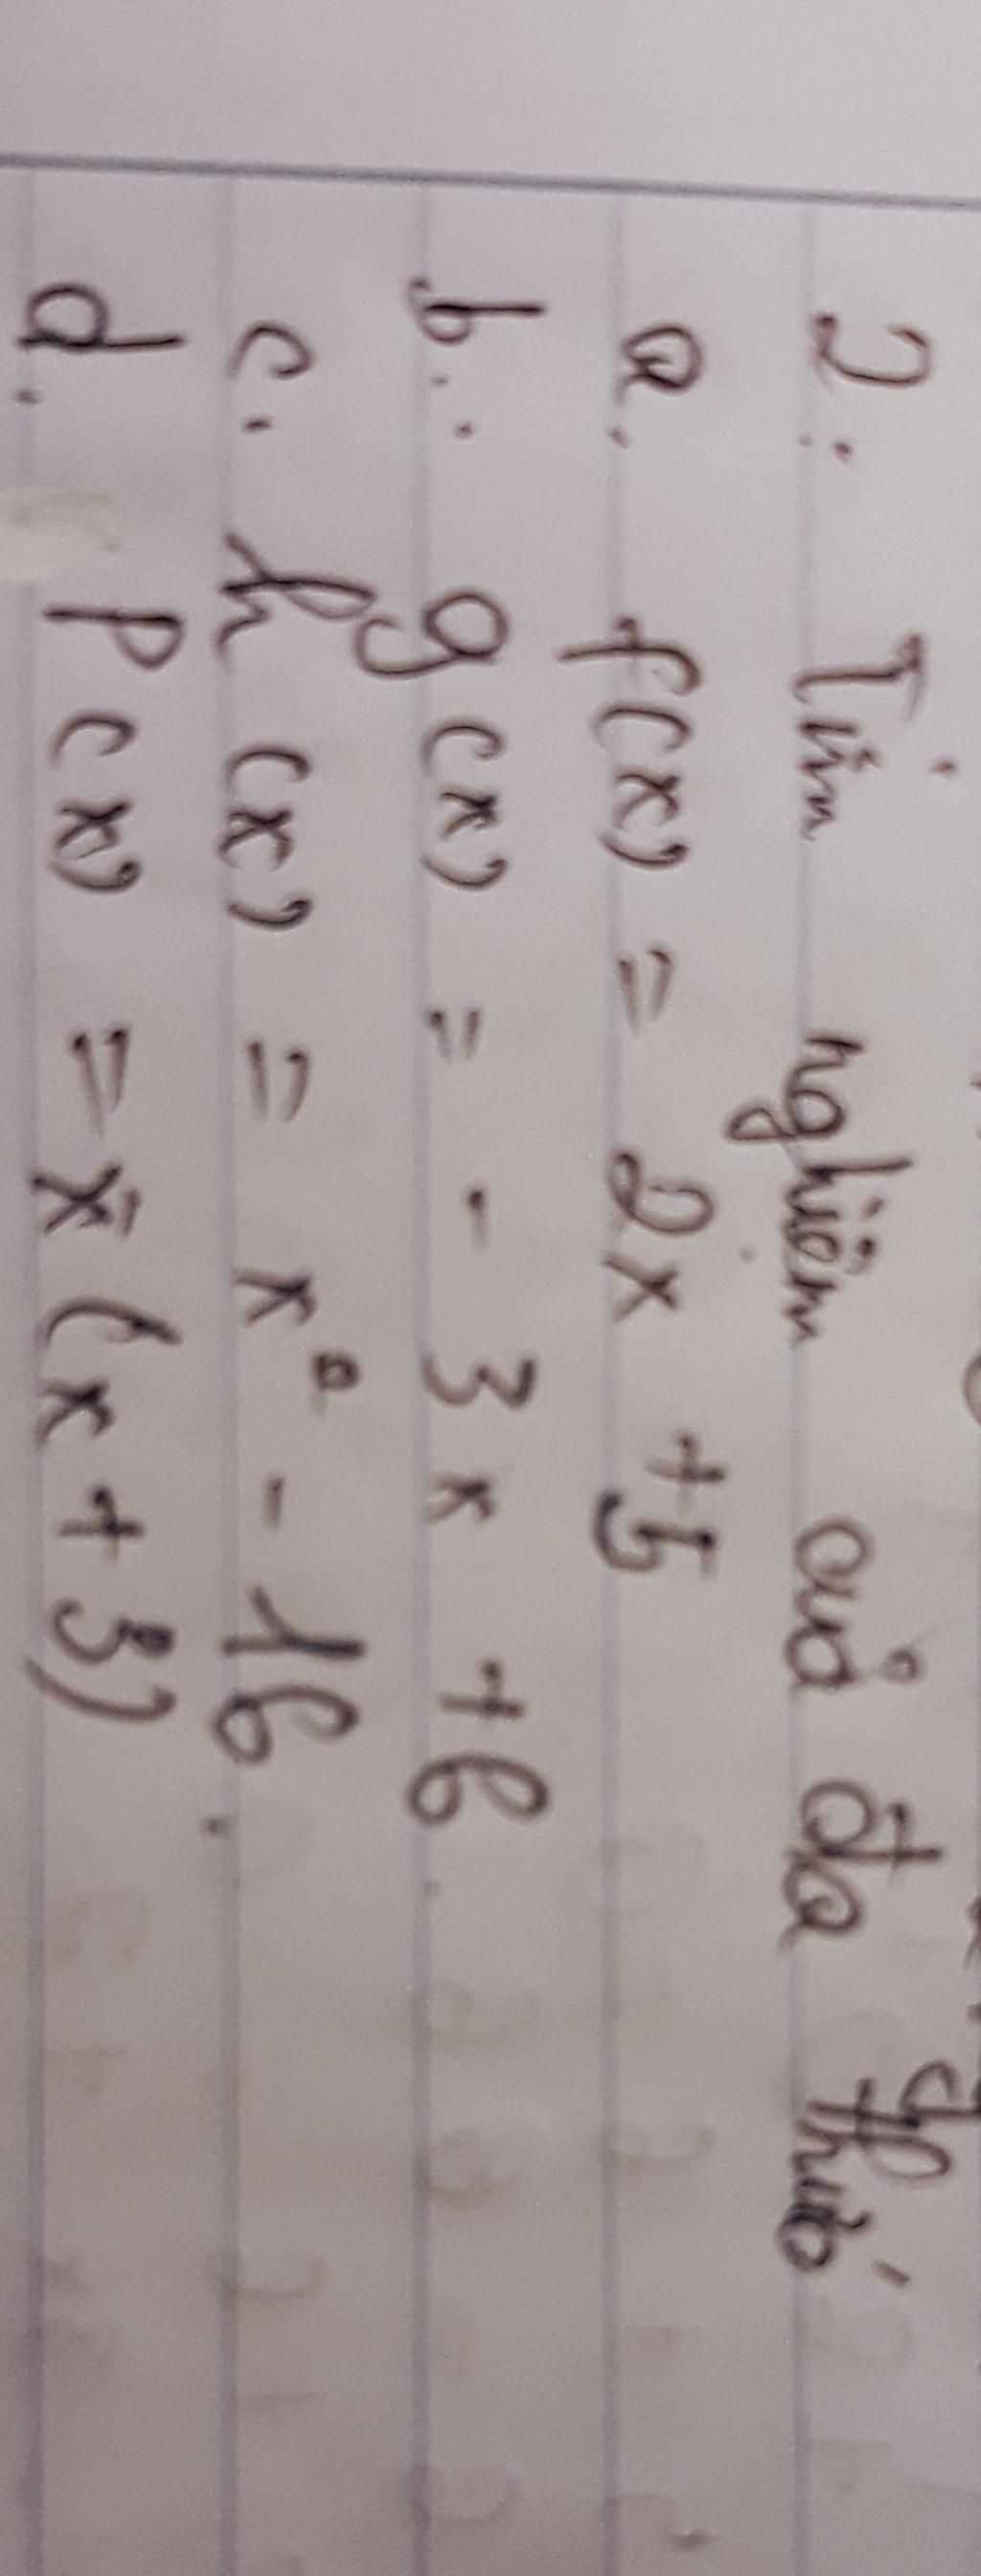 2: Tìm nghiệm cuả đa thức
a. f(x) = 2x + 5
b. g(x) = - 3x + 6
c. h(x) = x² - 16.
d. P(x) = x(x + 3)